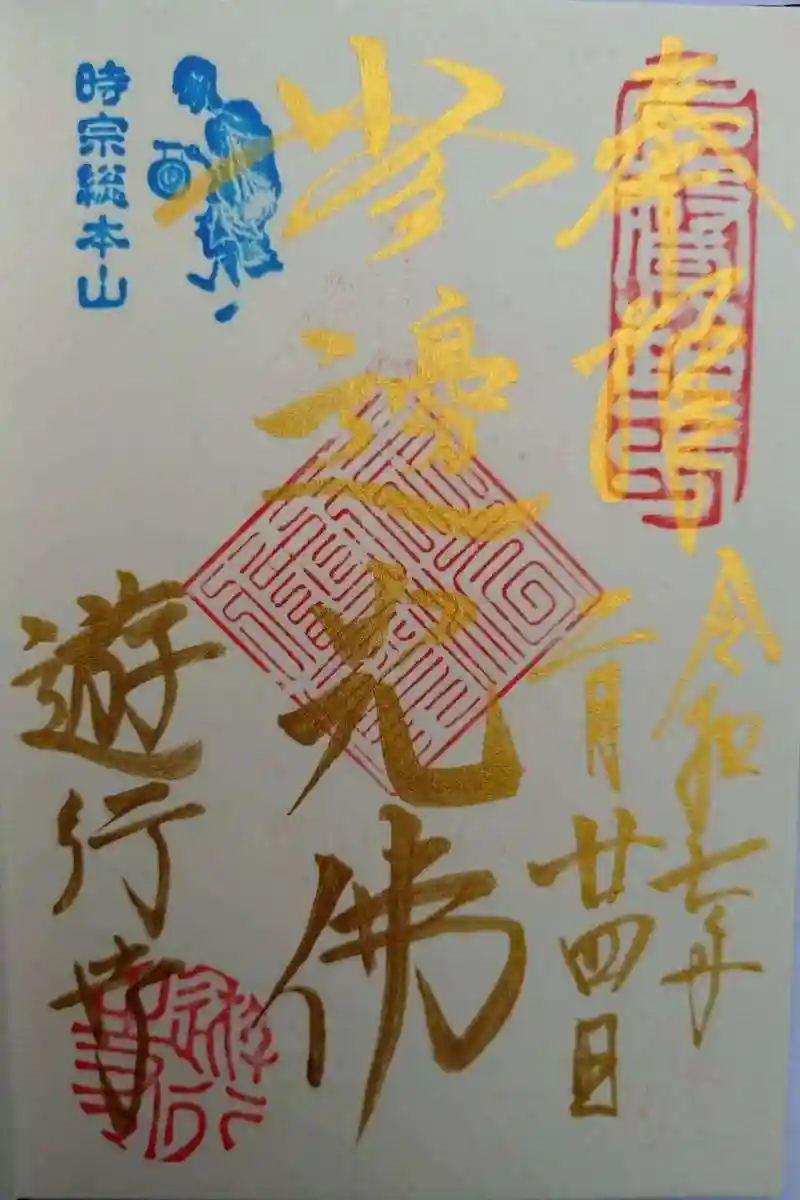 奉拝
令和七年
二月廿四日
無邊光佛
時宗総本山
遊行寺